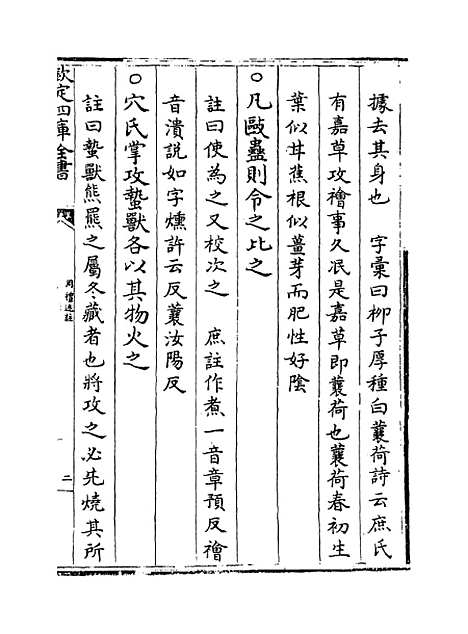 據去其身也　字彙曰柳子厚種白蘘荷詩云庶氏
有嘉草攻禬事久泯是嘉草即蘘荷也蘘荷春初生
葉似甘蕉根似薑芽而肥性好陰
○凡敺蠱則令之比之
註曰使為之又校次之　庶註作煮一音章預反禬
音潰說如字燻許云反蘘汝陽反
○穴氏掌攻蟄獸各以其物火之
註曰蟄獸熊羆之屬冬藏者也將攻之必先燒其所
欽定四庫全書
周禮述註
二